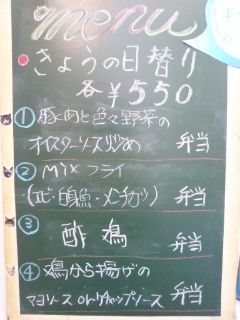 menu
きょうの日替り
各¥550
① 豚肉と色々野菜の
オイスターソース炒め 弁当
② MIXフライ
(エビ・白身魚・メンチカツ) 弁当
③ 酢鶏 弁当
④ 鶏から揚げの
マヨソース orケチャップソース 弁当